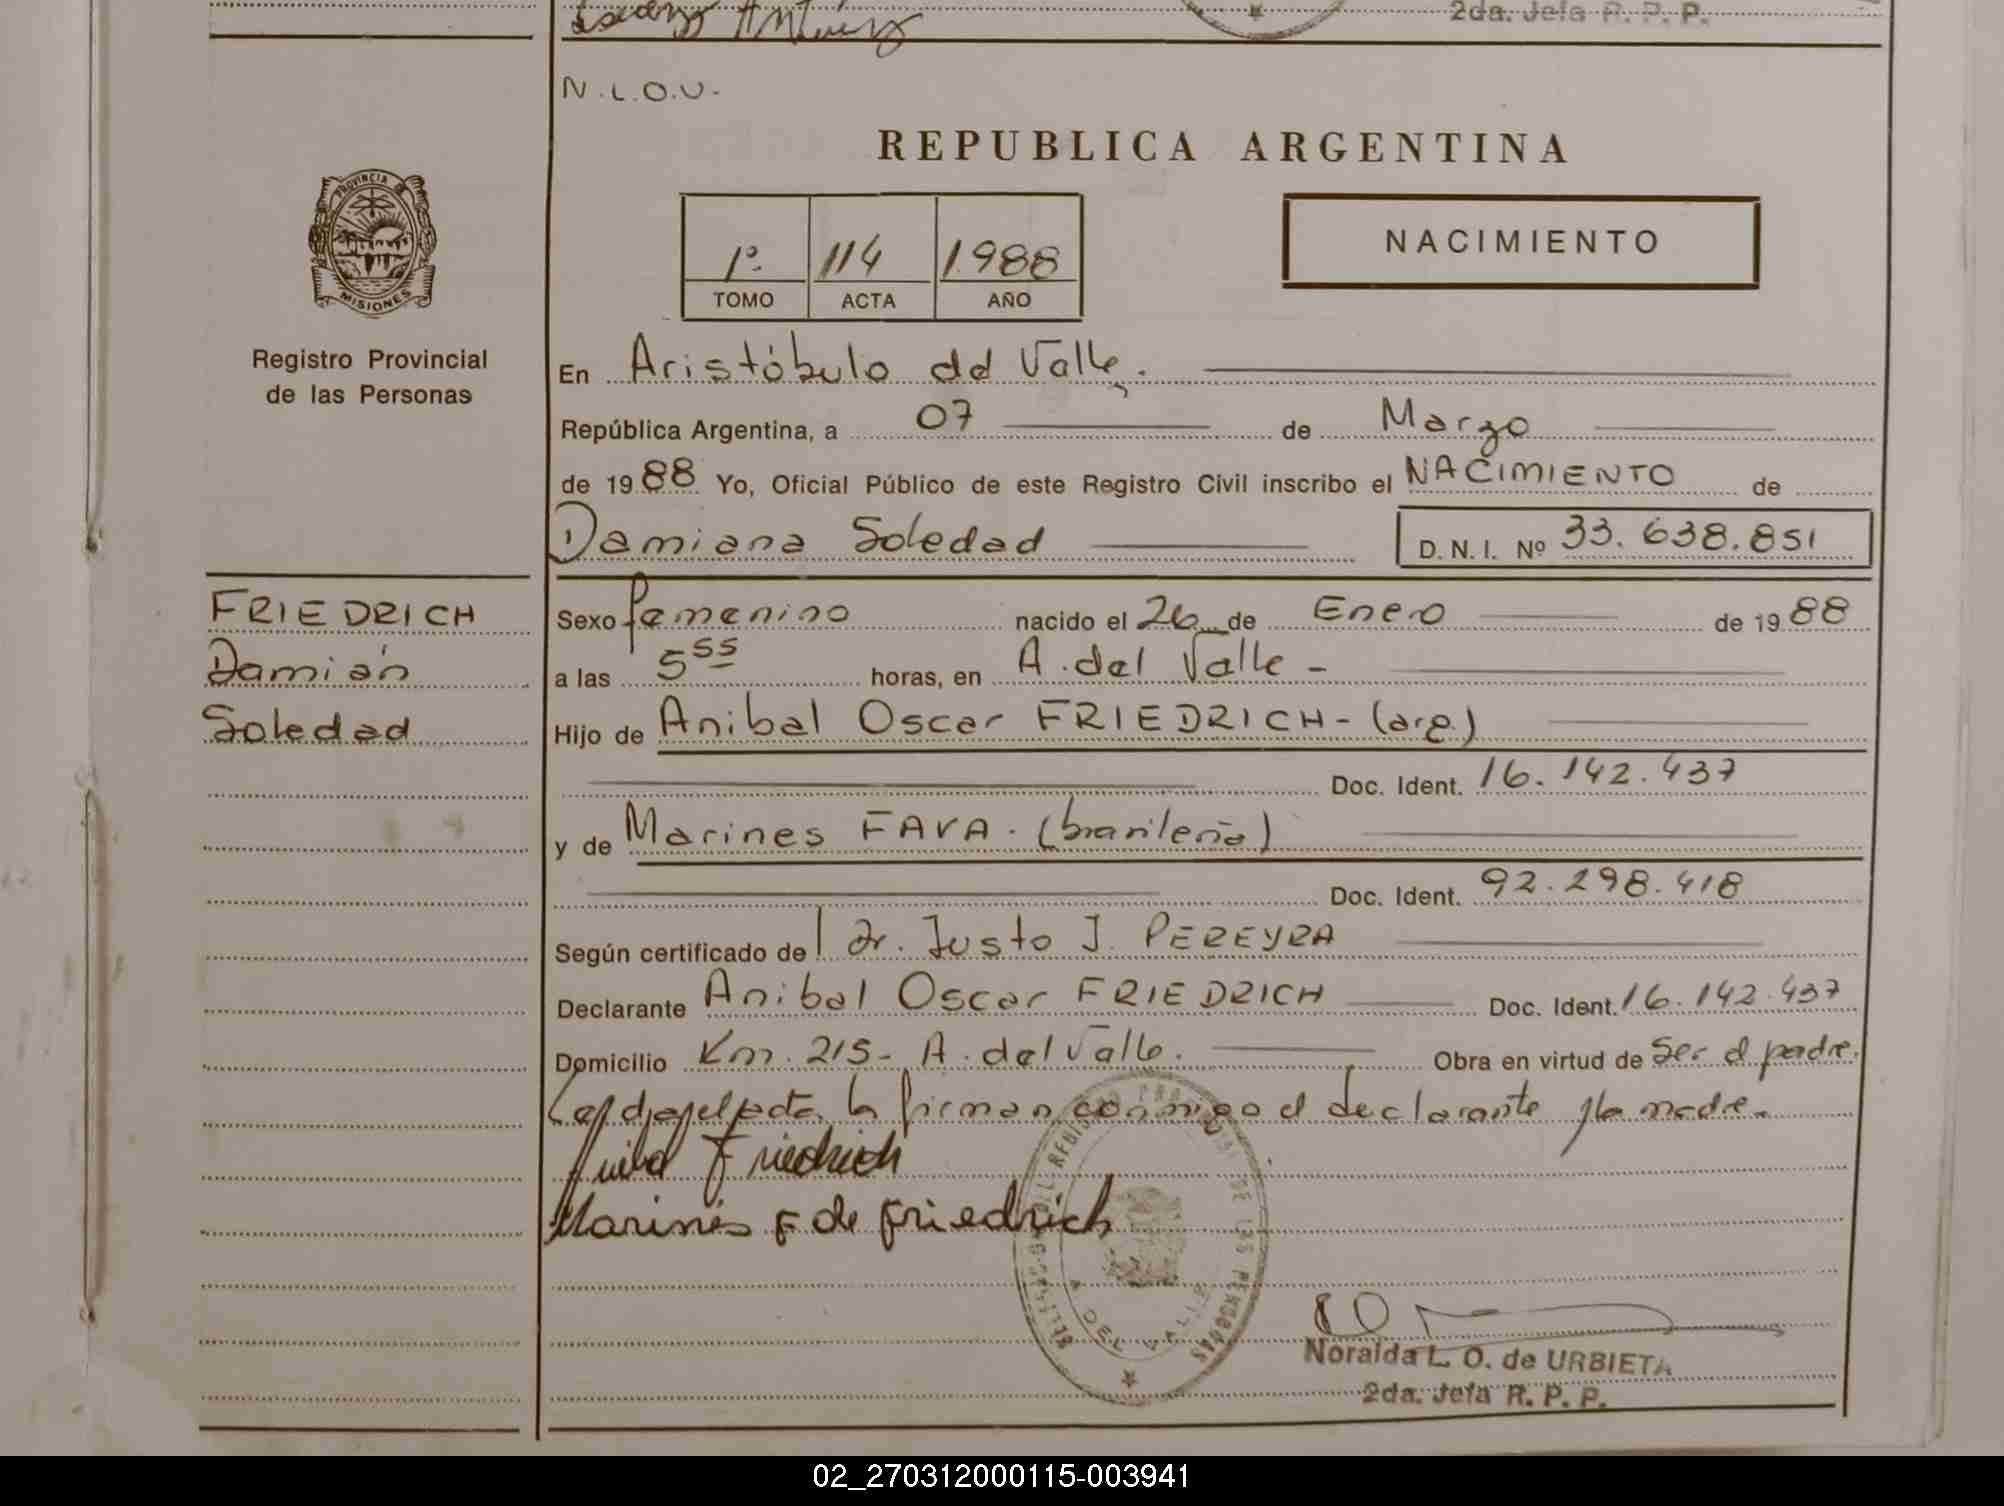 2da. Jefa R. P. P.
N.L.O.U.-
REPUBLICA ARGENTINA
PROVINCIA DE
MISIONES
1º 114 1988
TOMO ACTA AÑO
NACIMIENTO
Registro Provincial
de las Personas
En Aristóbulo del Valle.
República Argentina, a 07 de Marzo
de 1988 Yo, Oficial Público de este Registro Civil inscribo el NACIMIENTO de
Damiana Soledad D. N. I. Nº 33.638.851
FRIEDRICH
Damián
Soledad
Sexo femenino nacido el 26 de Enero de 1988
a las 5 55 horas, en A. del Valle -
Hijo de Anibal Oscar FRIEDRICH - (arg.)
Doc. Ident. 16.142.437
y de Marines FAVA. (brasileña)
Doc. Ident. 92.298.418
Según certificado de Dr. Justo J. PEREYRA
Declarante Anibal Oscar FRIEDRICH Doc. Ident. 16.142.437
Domicilio Km. 215- A. del Valle. Obra en virtud de ser el padre.
la firman conmigo el declarante y la madre.
Friedrich
Marinés F de Friedrich
REGISTRO PROVINCIAL DE LAS PERSONAS
A DEL VALLE
Noralda L. O. de URBIETA
2da. Jefa R. P. P.
02_270312000115-003941